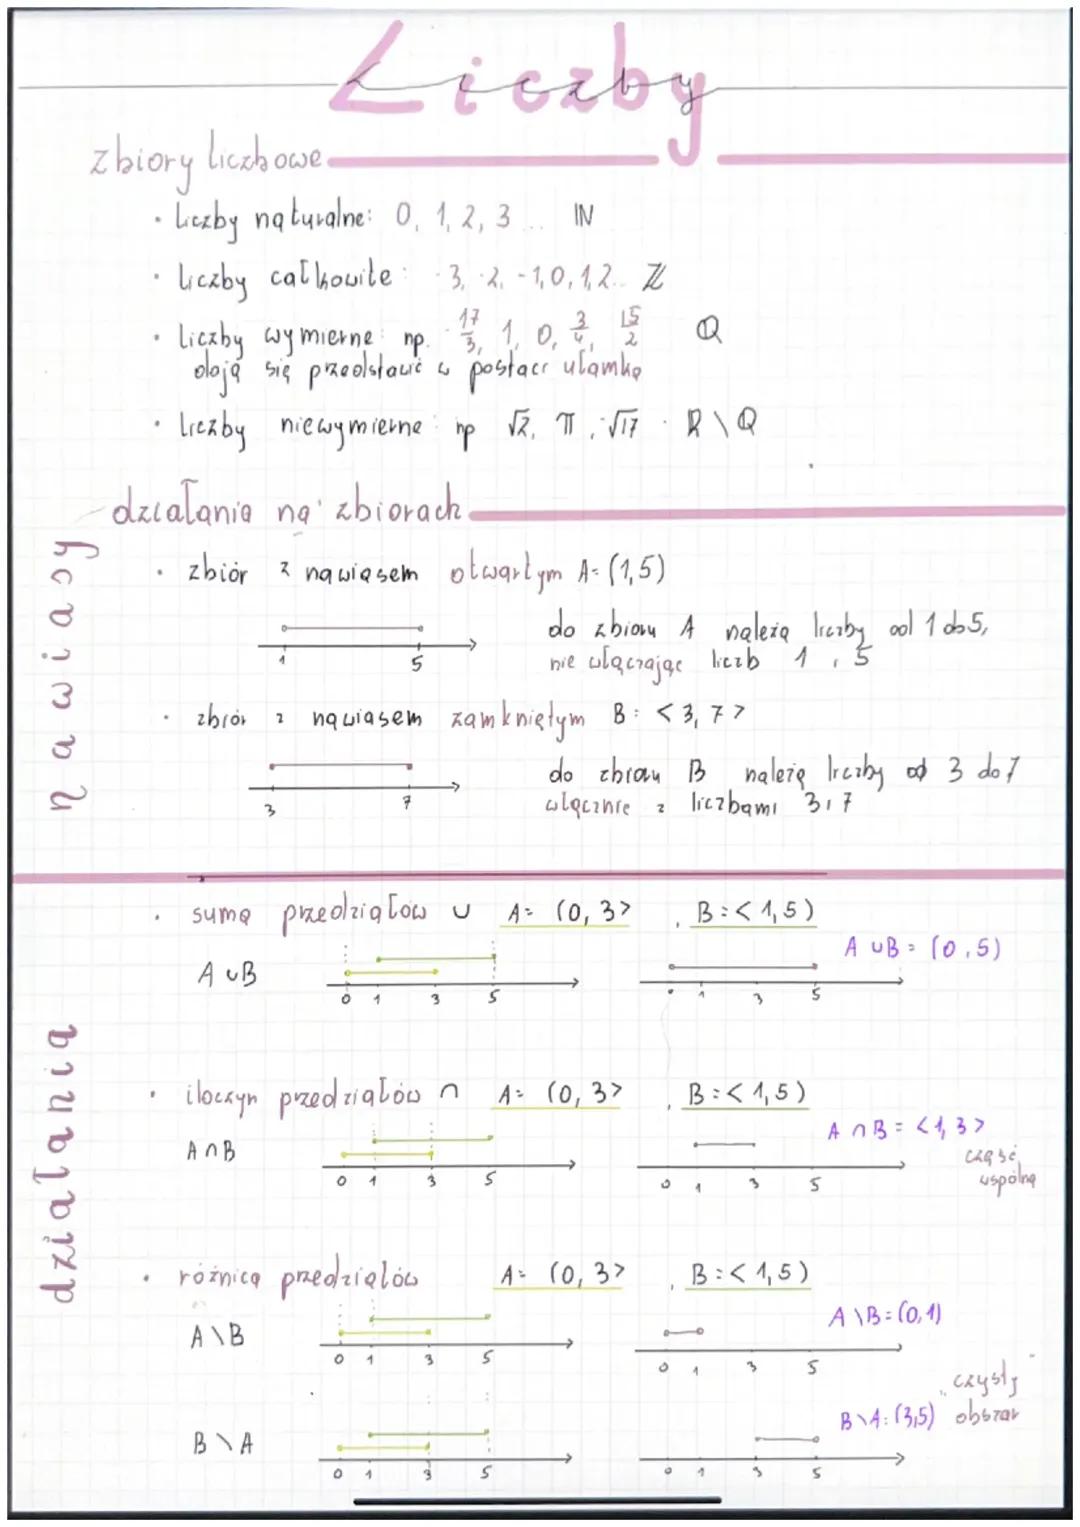 Liczby
zbiory liczbowe
· liczby naturalne: 0, 1, 2, 3 ... ℕ
· liczby całkowite: -3, -2, -1, 0, 1, 2... ℤ
· liczby wymierne np. -17/3, 1, 0, 3/4, 15/2 ℚ
dają się przedstawić w postaci ułamka
· liczby niewymierne np √2, π, -√17 · ℝ \ ℚ
działania na zbiorach
nawiasy
· zbiór z nawiasem otwartym A=(1,5)
do zbioru A należą liczby od 1 do 5,
nie włączając liczb 1 i 5
1 5
· zbiór z nawiasem zamkniętym B= <3,7>
do zbioru B należą liczby od 3 do 7
włącznie z liczbami 3 i 7
3 7
działania
· suma przedziałów ∪ A= (0,3> , B=<1,5)
A∪B = (0,5)
A∪B
0 1 3 5 1 3 5
· iloczyn przedziałów ∩ A= (0,3> , B=<1,5)
A∩B = <1,3>
A∩B część
wspólna
0 1 3 5 0 1 3 5
· różnica przedziałów A= (0,3> , B=<1,5)
A\B=(0,1)
A\B
0 1 3 5 0 1 3 5
"czysty"
B\A=(3,5) obszar
B\A
0 1 3 5 0 1 3 5